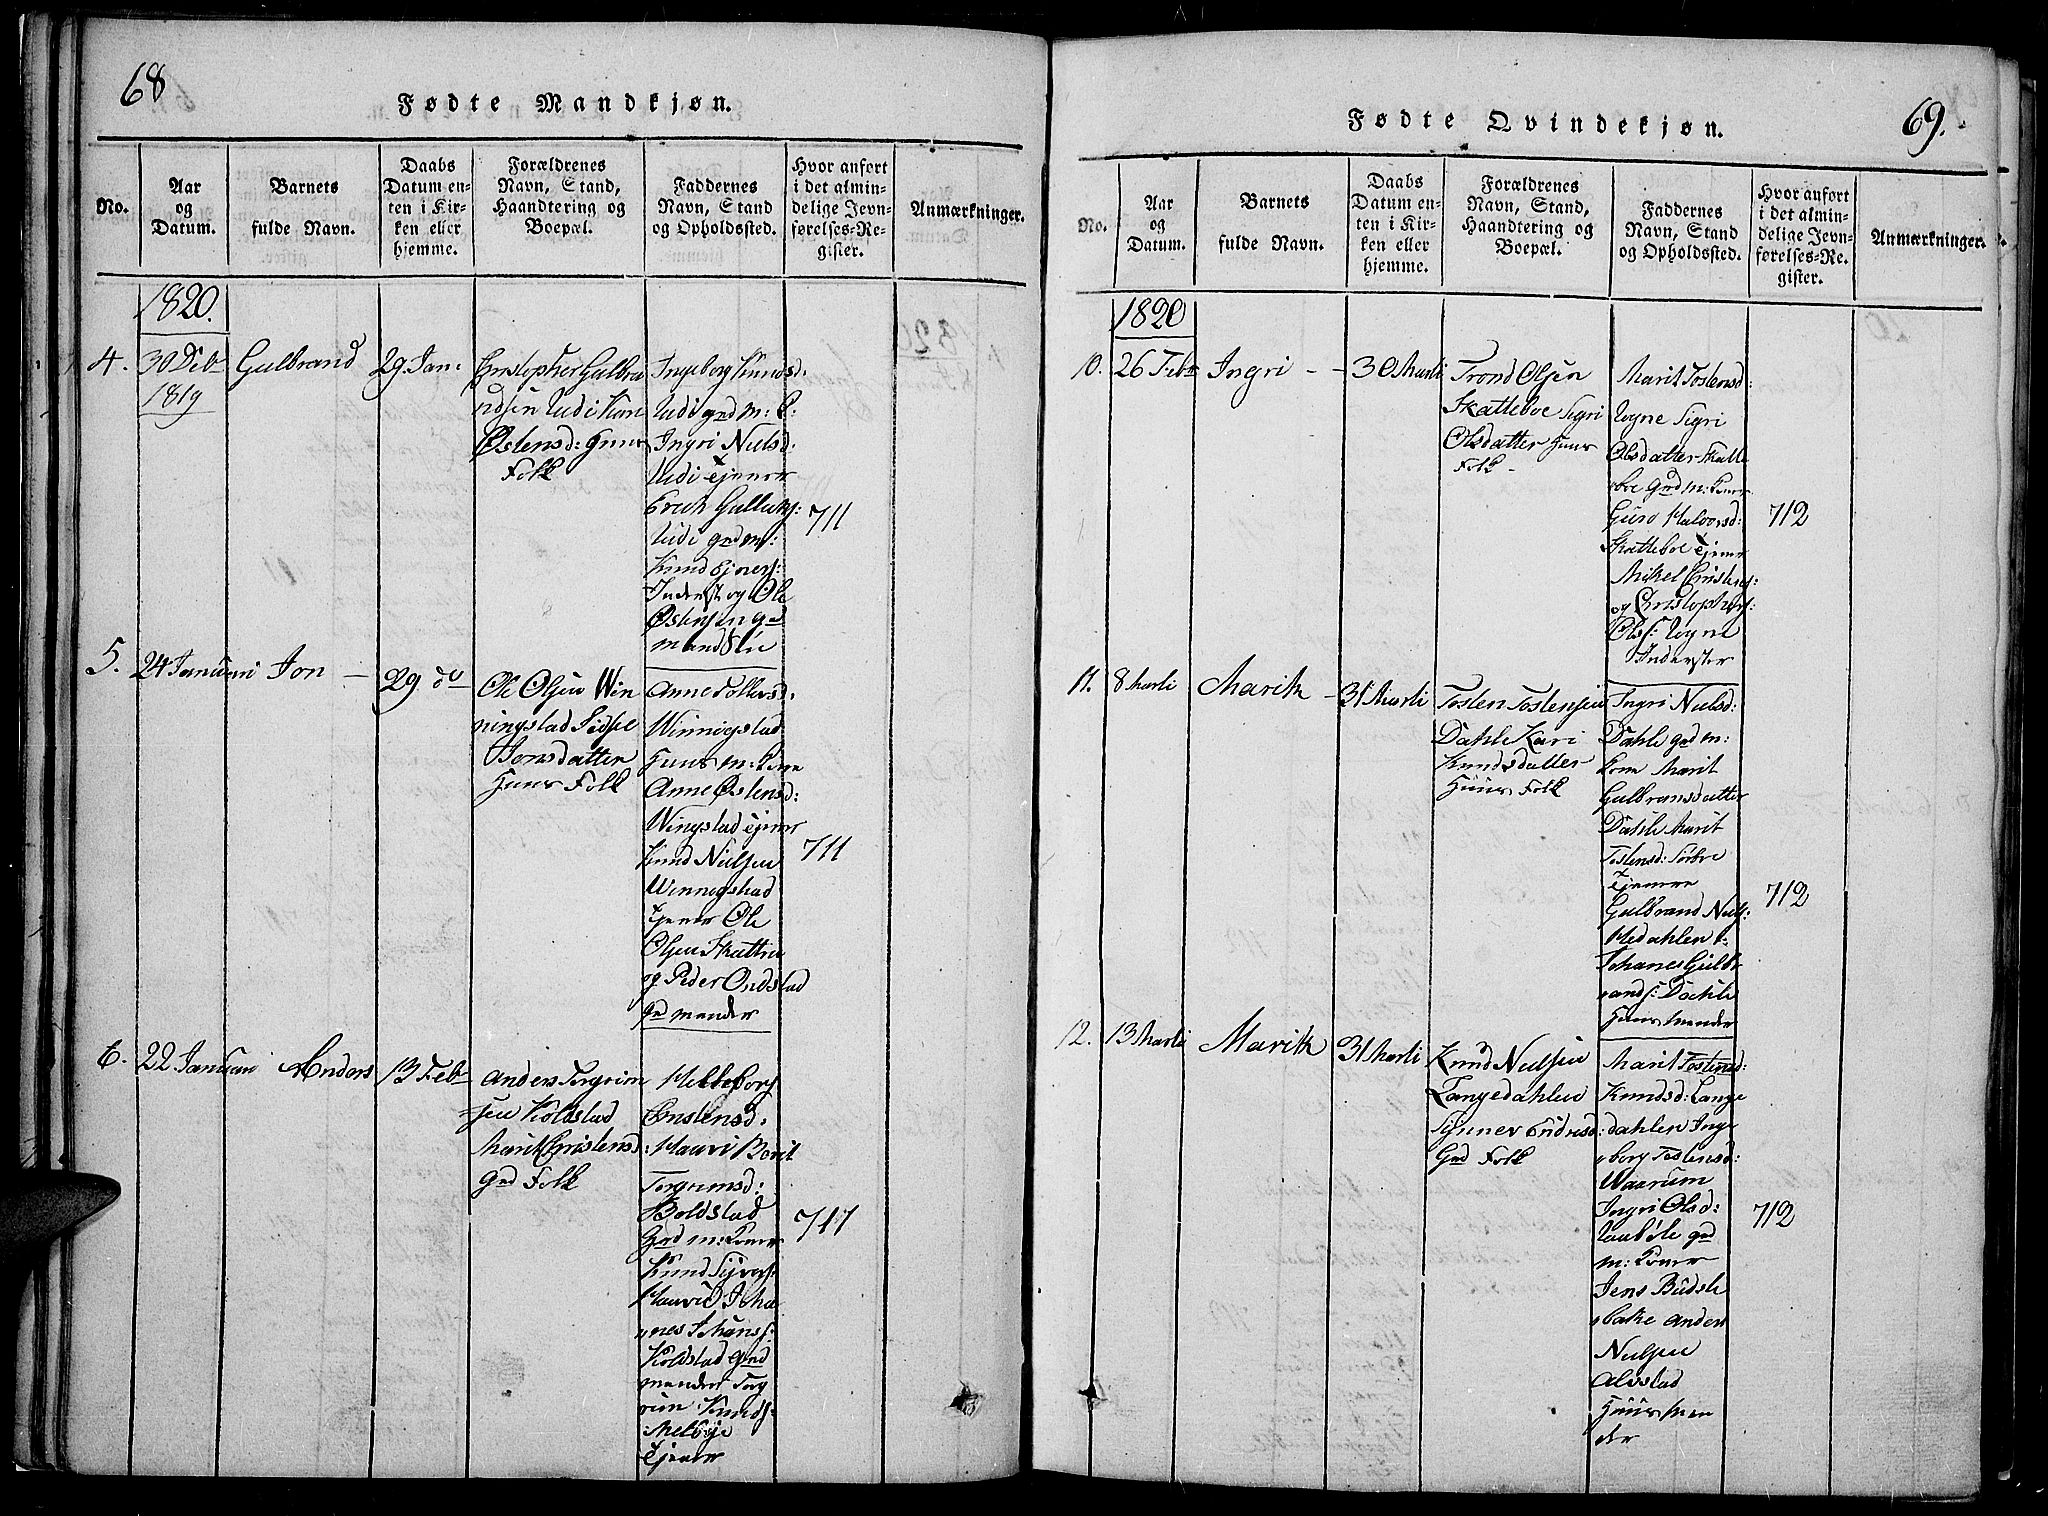 68
Fødte Mandkjøn.
No.
Aar
og
Datum.
Barnets
fulde Navn.
Daabs
Datum en-
ten i Kir-
ken eller
hjemme.
Forældrenes
Navn, Stand,
Haandtering og
Boepæl.
Faddernes
Navn, Stand
og Opholdssted.
Hvor anført
i det almin-
delige Jevn-
førelses-Re-
gister.
Anmærkninger.
1820.
4.
30 Deb
1819
Gulbrand
29 Jan
Christopher Gulbra
ndsen Udi Kari
Østensd: Huus
Folk
Ingeborg Knudsd:
Udi gdm: K:
Ingri Nielsd:
Udi Tjener
Erich
Udi gdm:
Knud
Inderst og Ole
Østensen gd
mand
711
5.
24 Januari
Jon
29 do
Ole Olsen Win
ningstad Sidsel
Jonsdatter
Huus Folk
Anne
Winnigstad
Huus m: Kone
Anne Østensd:
Wingstad Tjener
Knud Nielsen
Winnigstad
Tjener Ole
Olsen
og Peder Ondstad
gd mænder
711
6.
22 Januari
Anders
13 Feb
Anders Torgrim
sen Koldstad
Marit Christensd
Gd Folk
Østensd:
Hauri Berit
Torgrimsd:
Boldstad
Gdm: Koner
Knud
Haurie Joha
nnes Johans:
Koldstad Gd
mænder Torg
rim Knuds:
Tjener
717
69.
Fødte Qvindekjøn.
No.
Aar
og
Datum.
Barnets
fulde Navn.
Daabs
Datum en-
ten i Kir-
ken eller
hjemme.
Forældrenes
Navn, Stand,
Haandtering og
Boepæl.
Faddernes
Navn, Stand
og Opholdssted.
Hvor anført
i det almin-
delige Jevn-
førelses-Re-
gister.
Anmærkninger.
1820
10.
26 Feb
Ingri
30 Marti
Trond Olsen
Skatteboe Sigri
Olsdatter Huus
Folk
Marit Tostensd:
Rogne Sigri
Olsdatter Skatte
boe Gdm: Koner
Guro Halvorsd:
Skatteboe Tjener
Mikel Cristens:
og Christophers:
Ols: Rogne
Inderster
712
11.
8 Marti
Marith
31 Marti
Tosten Tostensen
Dahle Kari
Knudsdatter
Huus Folk
Ingri Nielsd:
Dahle gdm:
Kone Marit
Gulbransdatter
Dahle Marit
Tostensd: Sørboe
Tjenere
Gulbrand Niels:
Medahlen
Johanes Gulbr
ands: Dahle
Huus mænder
712
12.
13 Marti
Marith
31 Marti
Knud Nielsen
Langedahlen
Gd Folk
Marit Tostensd:
Knudsd: Lange
dahlen Inge
borg Tostensd:
Waarum
Ingri Olsd:
gd
m: Koner
Jens Budsle
bake Anders
Nielsen
Alsstad
Huus mæn
der
712